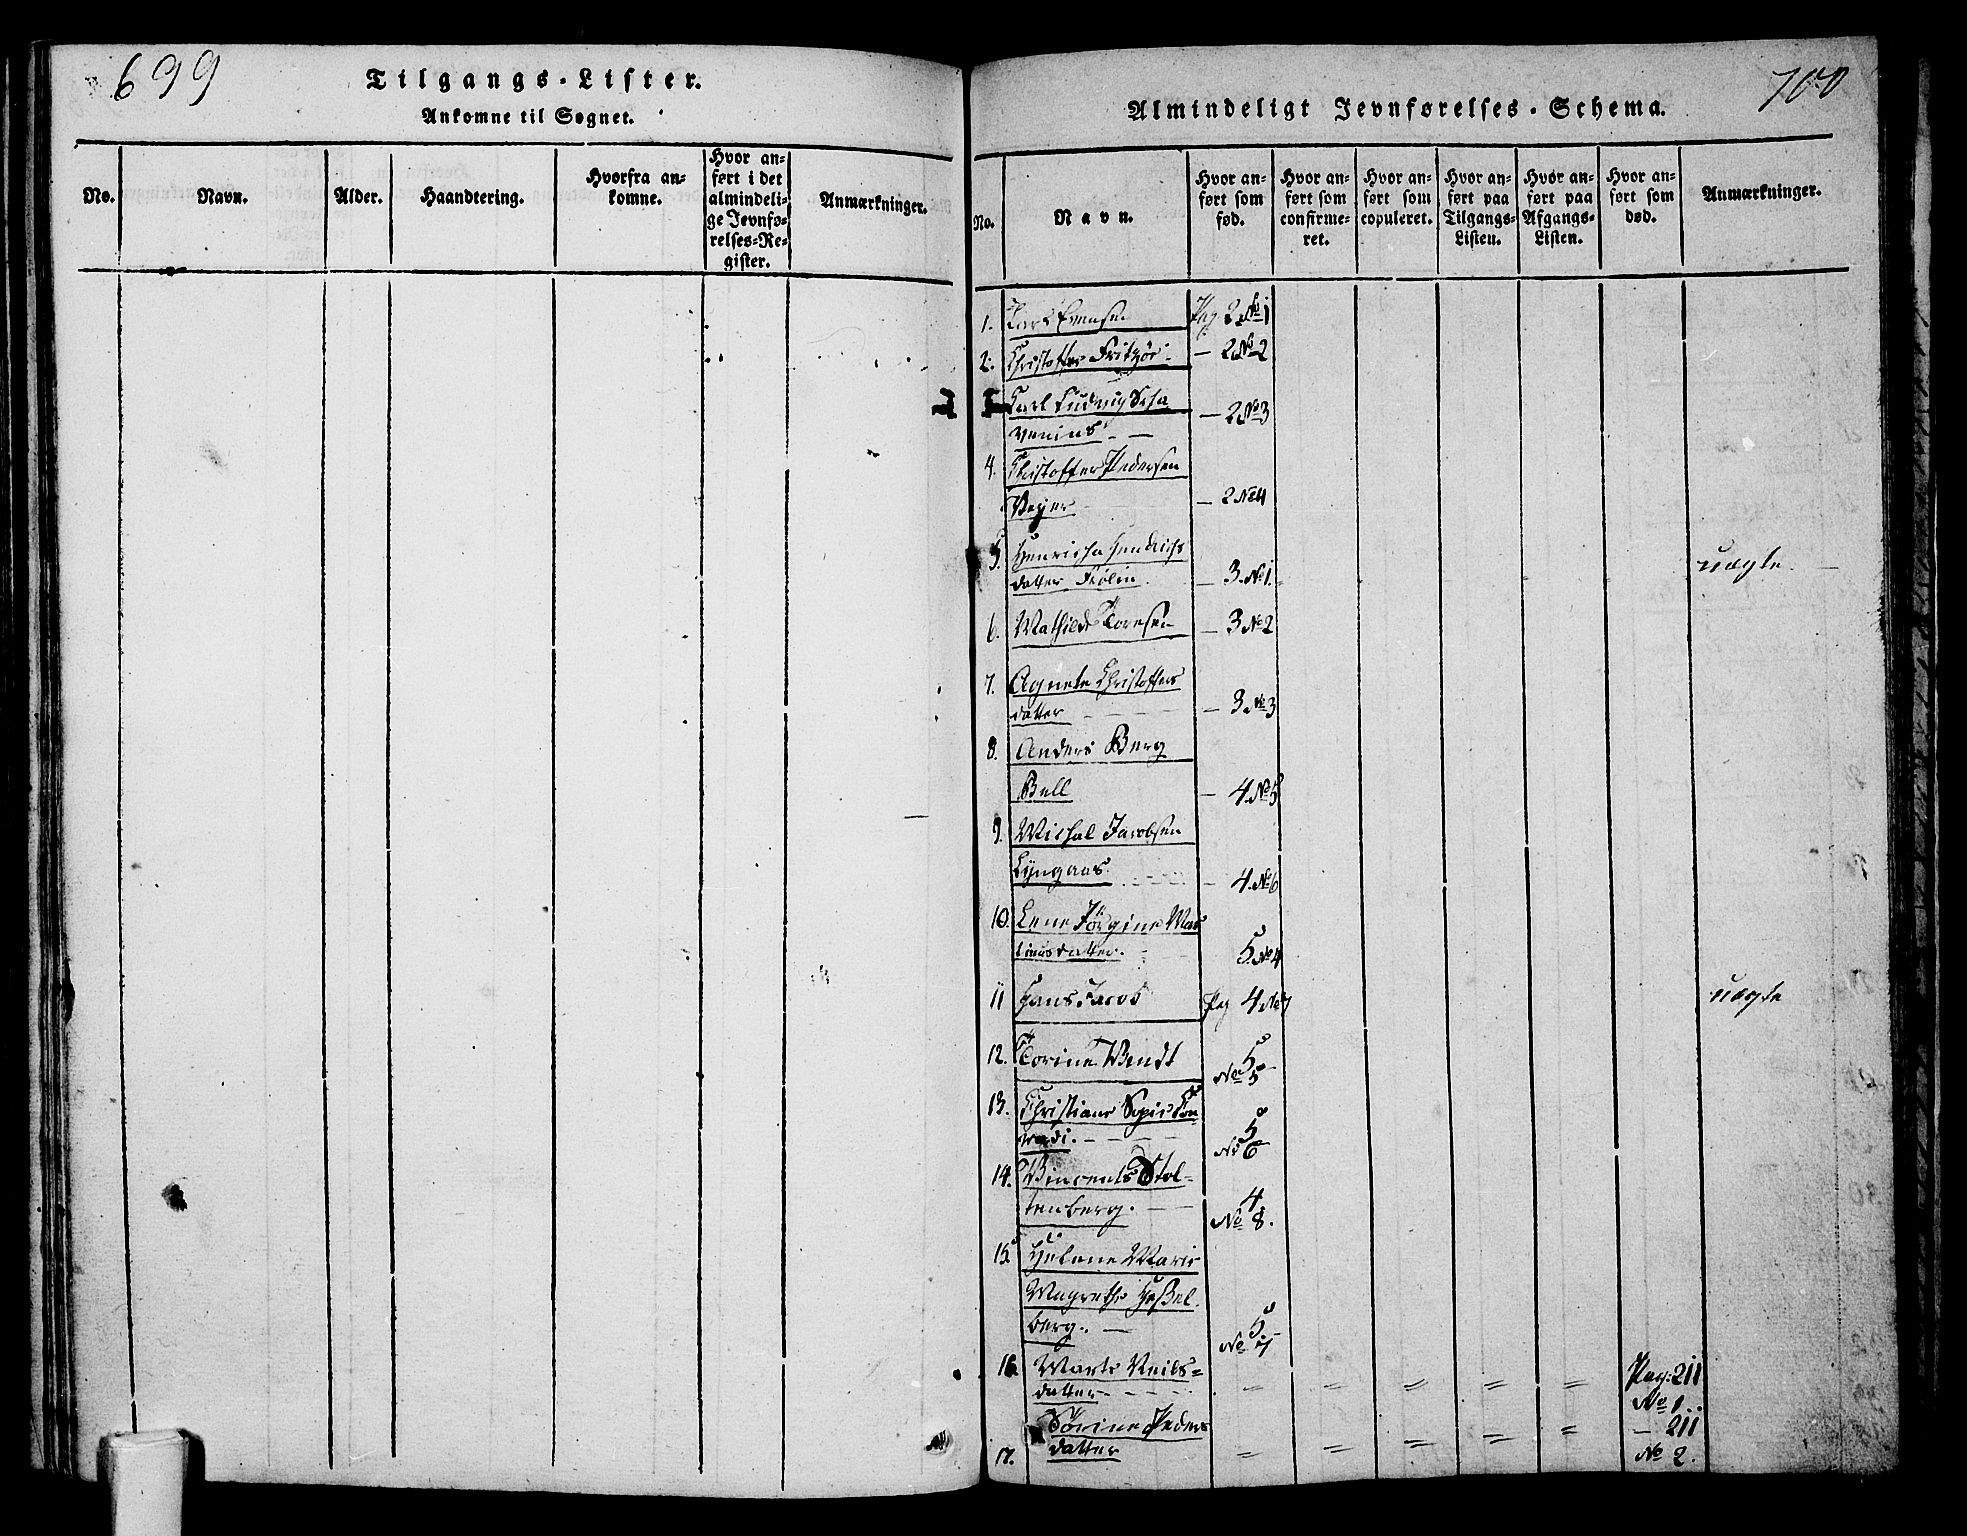 699
Tilgangs-Lister.
Ankomne til Sognet.
No.
Navn.
Alder.
Haandtering.
Hvorfra an-
komne.
Hvor an-
ført i det
almindeli-
ge Jevnfø-
relses-Re-
gister.
Anmærkninger.
700
Almindeligt Jevnførelses-Schema.
No.
Navn.
Hvor an-
ført som
fød.
Hvor an-
ført som
confirme-
ret.
Hvor an-
ført som
copuleret.
Hvor an-
ført paa
Tilgangs-
Listen.
Hvor an-
ført paa
Afgangs-
Listen.
Hvor an-
ført som
død.
Anmærkninger.
1. Lars Evensen Pag 2 No 1
2. Christoffer Fritzøe - 2 No 2
Carl Ludvig - 2 No 3
4. Christoffer Pedersen
Beyer - 2 No 4
5. Henricha Hendrichs
datter - 3 No 1. uægte.
6. Mathilde Toresen - 3 No 2
7. Agnete Christoffers
datter - 3 No 3
8. Anders Berg
Bull - 4 No 5
9. Michal Jacobsen
Lyngaas. - 4 No 6
10. Lene Jörgine Mar
tinusdatter. 5 No 4
11 Hans Jacob Pag 4 No 7 uægte
12. Torine Wendt 5 No 5
13. Christiane Con
radi. 5 No 6
14. Vincents Stol-
tenberg. 4 No 8.
15. Helene Marie
Magrethe Heßel
berg. 5 No 7
16. Marte Neils=
datter = = = = = Pag: 211
No 1.
17. Sörine Peders
datter = = = = = - 211
No 2.